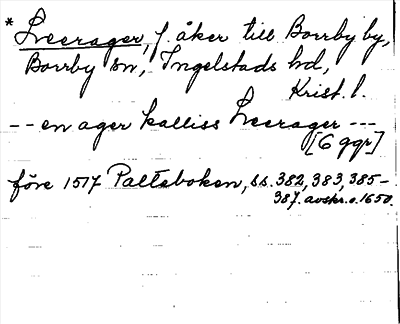 * Leerager, f. åker till Borrby by,
Borrby sn, Ingelstads hd,
Krist. l.
-- en ager kalliss Leerager ---
[6 ggr]
före 1517 Palteboken, ss. 382, 383, 385-
387. avskr. o. 1650.